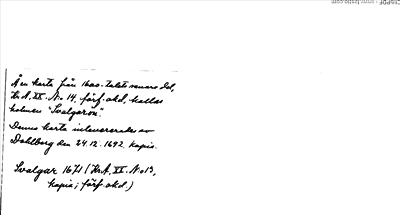 Å en karta från 1600-talets senare del,
Kr.A. XX. No 14, förf. okd, kallas
holmen "Svalgaron".
Denna karta inlevererades av
Dahlberg den 24.12.1692. Kopia.
Svalgar 1671 (Kr.A. XX. No 13,
kopia; förf. okd.)